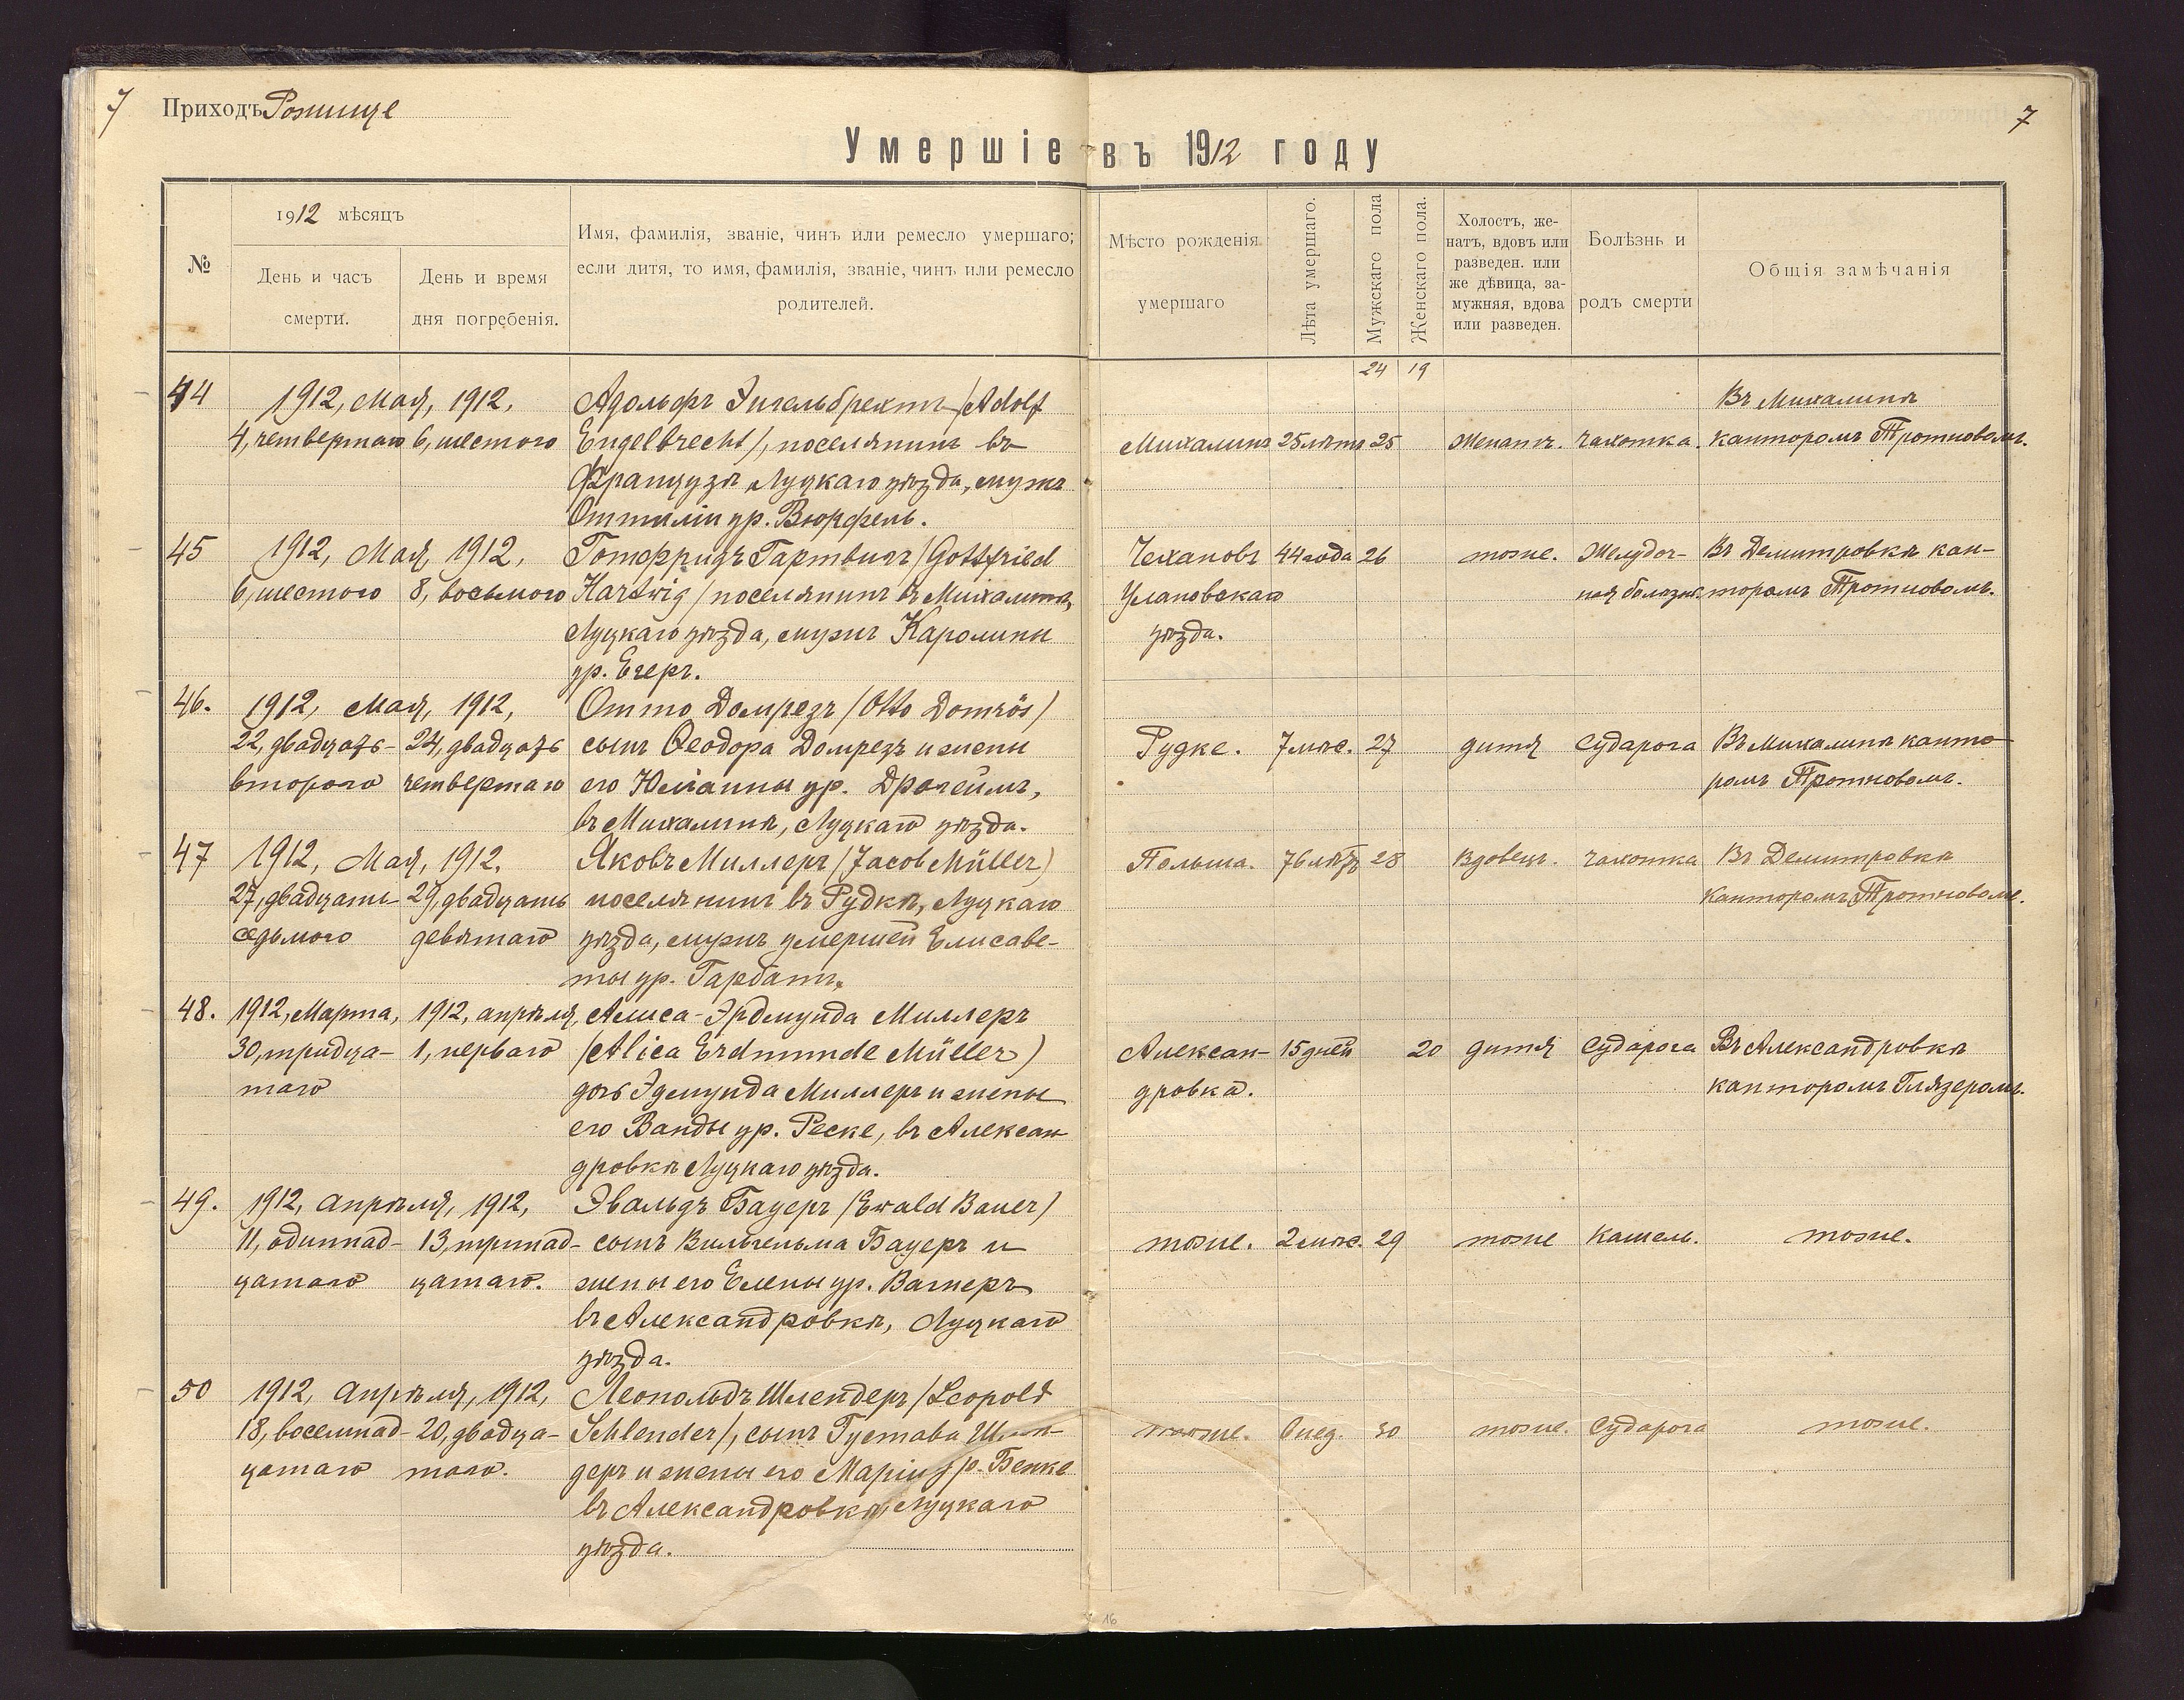 7 Приходъ Рожище 7
Умершіе въ 1912 году
№
1912 мѣсяцъ
День и часъ
смерти.
День и время
дня погребенія.
Имя, фамилія, званіе, чинъ или ремесло умершаго;
если дитя, то имя, фамилія, званіе, чинъ или ремесло
родителей.
Мѣсто рожденія
умершаго
Лѣта умершаго.
Мужскаго пола
Женскаго пола.
Холостъ, же-
натъ, вдовъ или
разведен. или
же дѣвица, за-
мужняя, вдова
или разведен.
Болѣзнь и
родъ смерти
Общія замѣчанія
24 19
44 1912, Мая, 1912, Адольфъ Энгельбрехтъ /Adolf Въ Михалинѣ
4, четвертаго 6, шестого Engelbrecht/, поселянинъ въ Михалинъ 25 лѣтъ 25 женатъ. чахотка. канторомъ Тротновомъ.
Французѣ Луцкаго уѣзда, мужъ
Оттиліи ур. Вюрфель.
45 1912, Мая, 1912, Готфридъ Гартвигъ /Gottfried Чехановъ 44 года 26 тоже. Желудоч- Въ Демитровкѣ кан-
6, шестого 8, восьмого Hartwig/ поселянинъ въ Михалинѣ, Улановскаго ная болѣзнь. торомъ Тротновомъ.
Луцкаго уѣзда, мужъ Каролины уѣзда.
ур. Егеръ.
46. 1912, Мая, 1912, Отто Домрезъ /Otto Domrös/
22, двадцать- 24, двадцать сынъ Ѳеодора Домрезъ и жены Рудке. 7 мѣс. 27 дитя судорога Въ Михалинѣ канто-
второго четвертаго его Юліанны ур. Драгеймъ, ромъ Тротновомъ.
въ Михалинѣ, Луцкаго уѣзда.
47 1912, Мая, 1912. Яковъ Миллеръ /Jacob Müller/ Польша. 76 лѣтъ 28 Вдовецъ. чахотка Въ Демитровкѣ
27, двадцать- 29, двадцать поселянинъ въ Рудкѣ, Луцкаго канторомъ Тротновомъ.
седьмого девятаго уѣзда, мужъ умершей Елисаве-
ты ур. Гарбатъ.
48. 1912, Марта, 1912, апрѣля, Алиса-Эрдмунда Миллеръ
30, тридца- 1, перваго /Alica Erdmunde Müller/ Алексан- 15 дней 20 дитя судорога Въ Александровкѣ
таго дочь Эдмунда Миллеръ и жены дровка. канторомъ Глязеромъ.
его Ванды ур. Реске, въ Алексан-
дровкѣ Луцкаго уѣзда.
49. 1912, апрѣля, 1912, Эвальдъ Бауеръ /Ewald Bauer/
11, одиннад- 13, тринад- сынъ Вильгельма Бауеръ и тоже. 2 мѣс. 29 тоже кашель. тоже.
цатаго цатаго. жены его Елены ур. Вагнеръ
въ Александровкѣ, Луцкаго
уѣзда.
50 1912, апрѣля, 1912, Леопольдъ Шлендеръ /Leopold
18, восемнад- 20, двадца- Schlender/, сынъ Густава Шлен- тоже. 6 нед. 30 тоже. судорога тоже.
цатаго таго. деръ и жены его Маріи ур. Бенке
въ Александровкѣ Луцкаго
уѣзда.
16